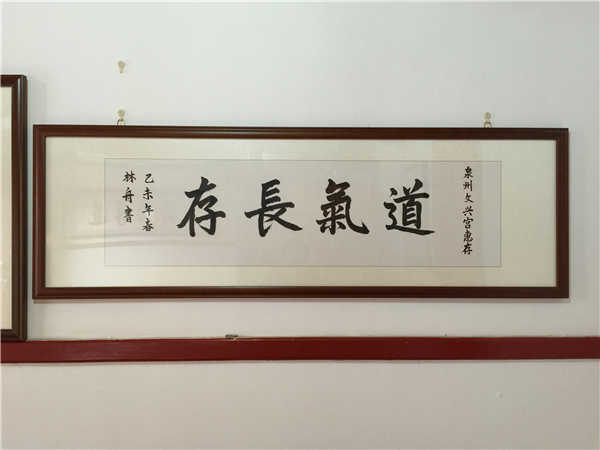 泉州文兴宫惠存
道氣長存
乙未年春
林舟書